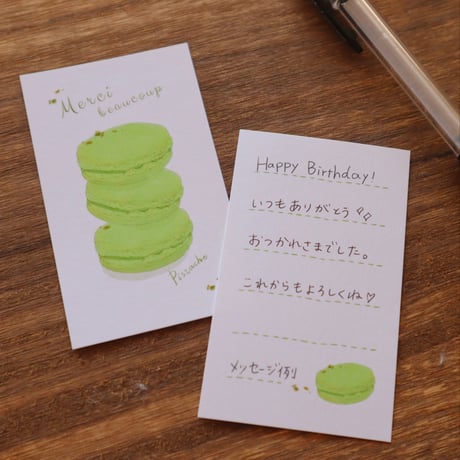 Merci
beaucoup
Pistache
Happy Birthday!
いつもありがとう
おつかれさまでした。
これからもよろしくね♡
メッセージ例